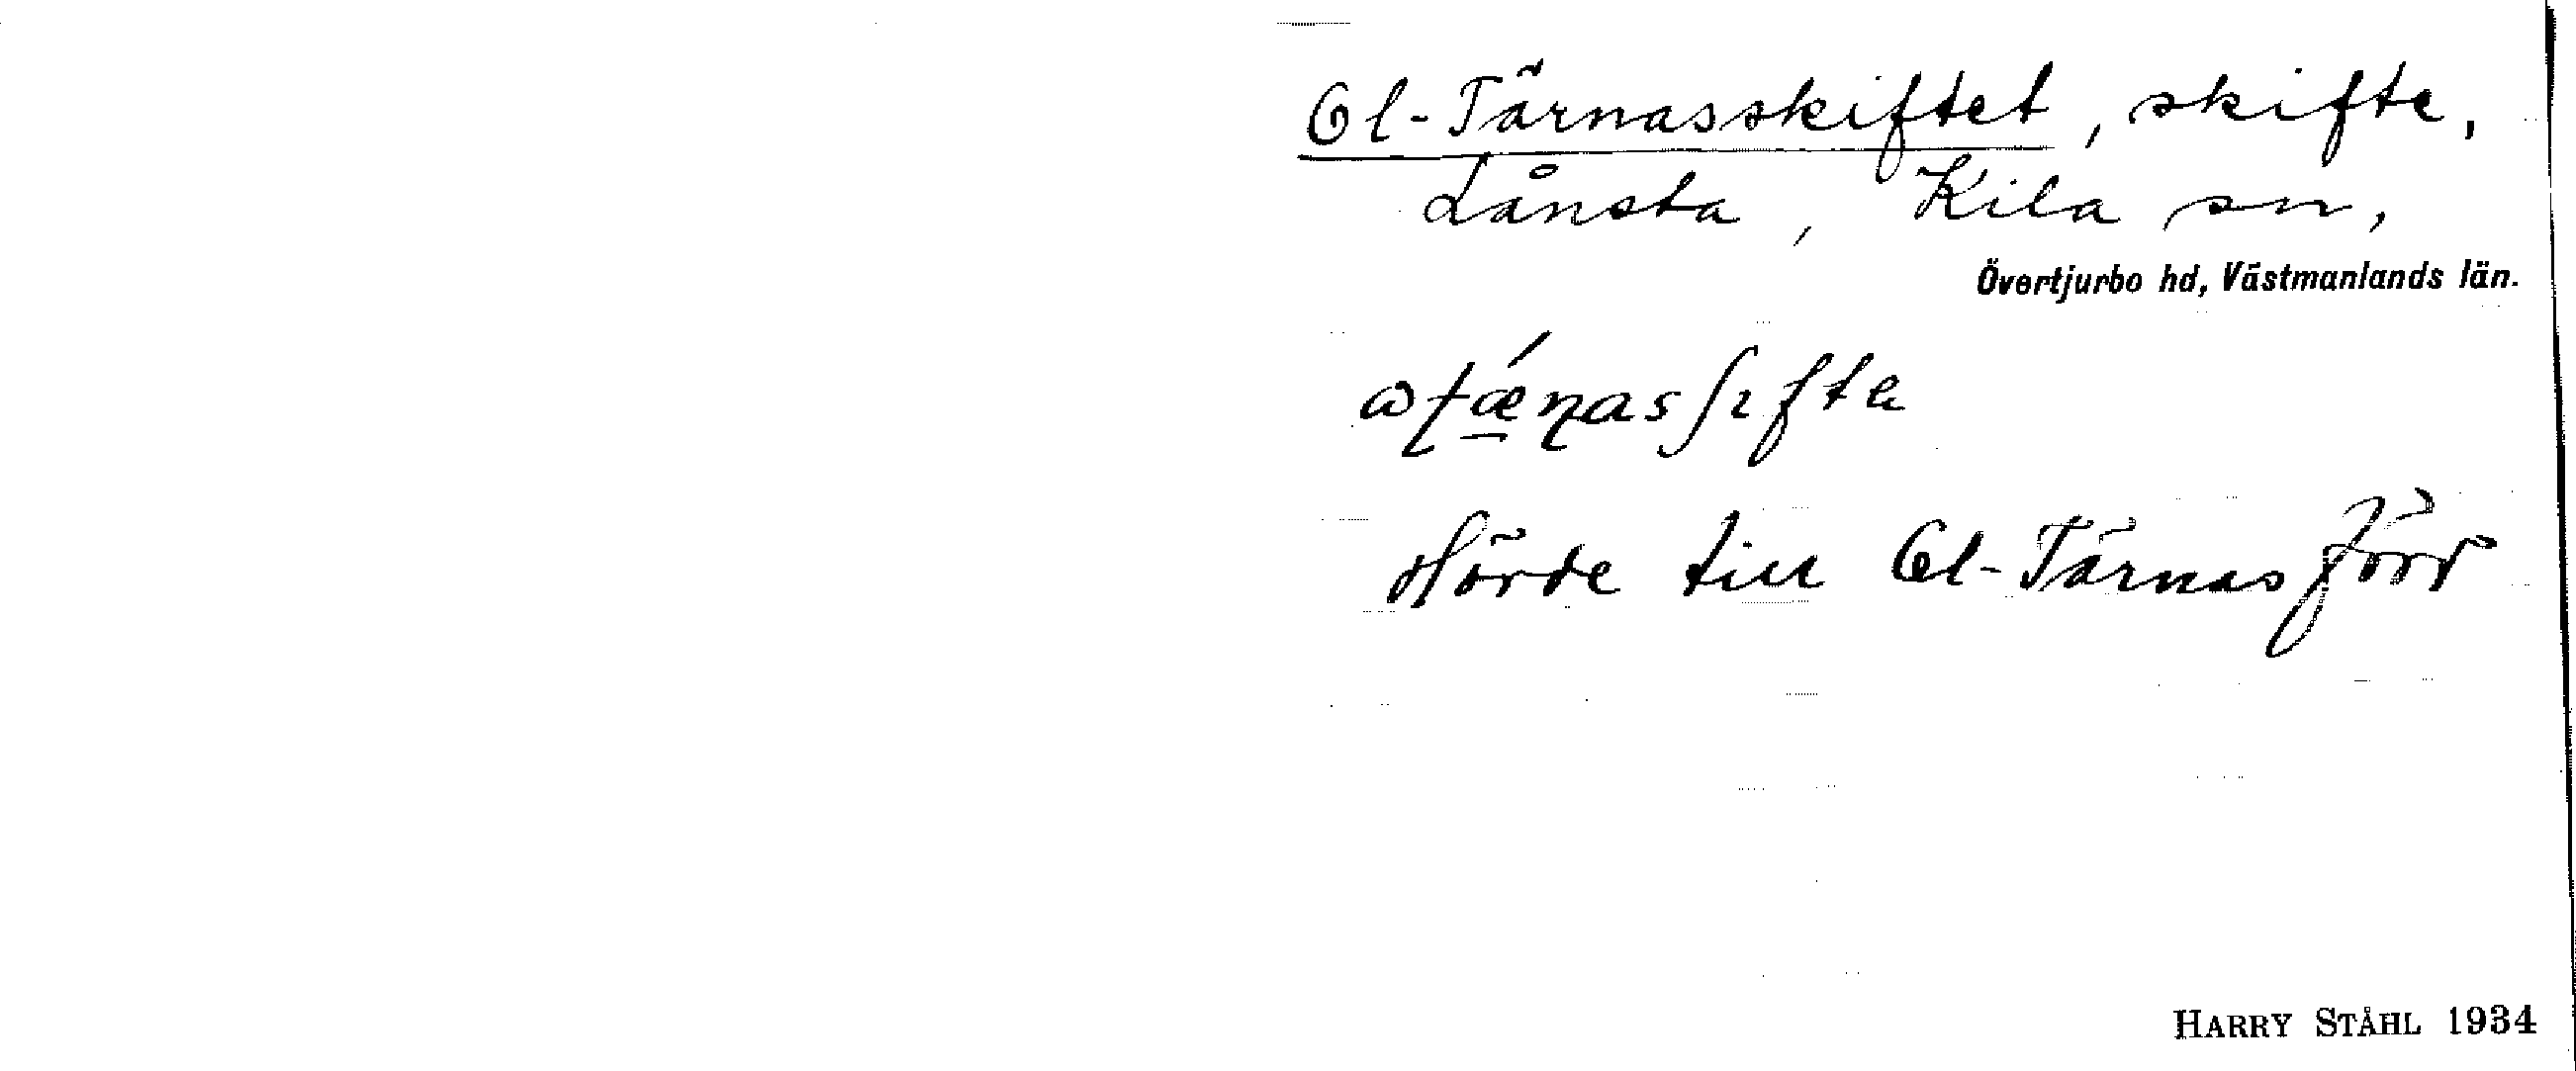 Ol-Tärnasskiftet, skifte,
Lånsta, Kila sn,
Övertjurbo hd, Västmanlands län.
Hörde till Ol-Tärnas förr
HARRY STÅHL 1934